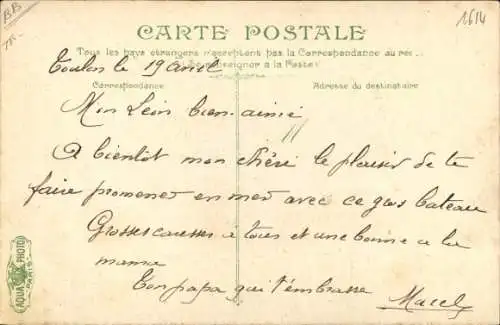 BB
1614
CARTE POSTALE
Tous les pays étrangers n'acceptent pas la Correspondance au recto
(Se renseigner à la Poste)
Toulon le 19 Avril
Correspondance
Adresse du destinataire
Mon Léon bien aimé
A bientôt mon chéri le plaisir de te
faire promener en mer avec ce gros bateau
Grosses caresses à tous et une bonne a la
mama
Ton papa qui t'embrasse
Marcel
AQUA PHOTO
PARIS